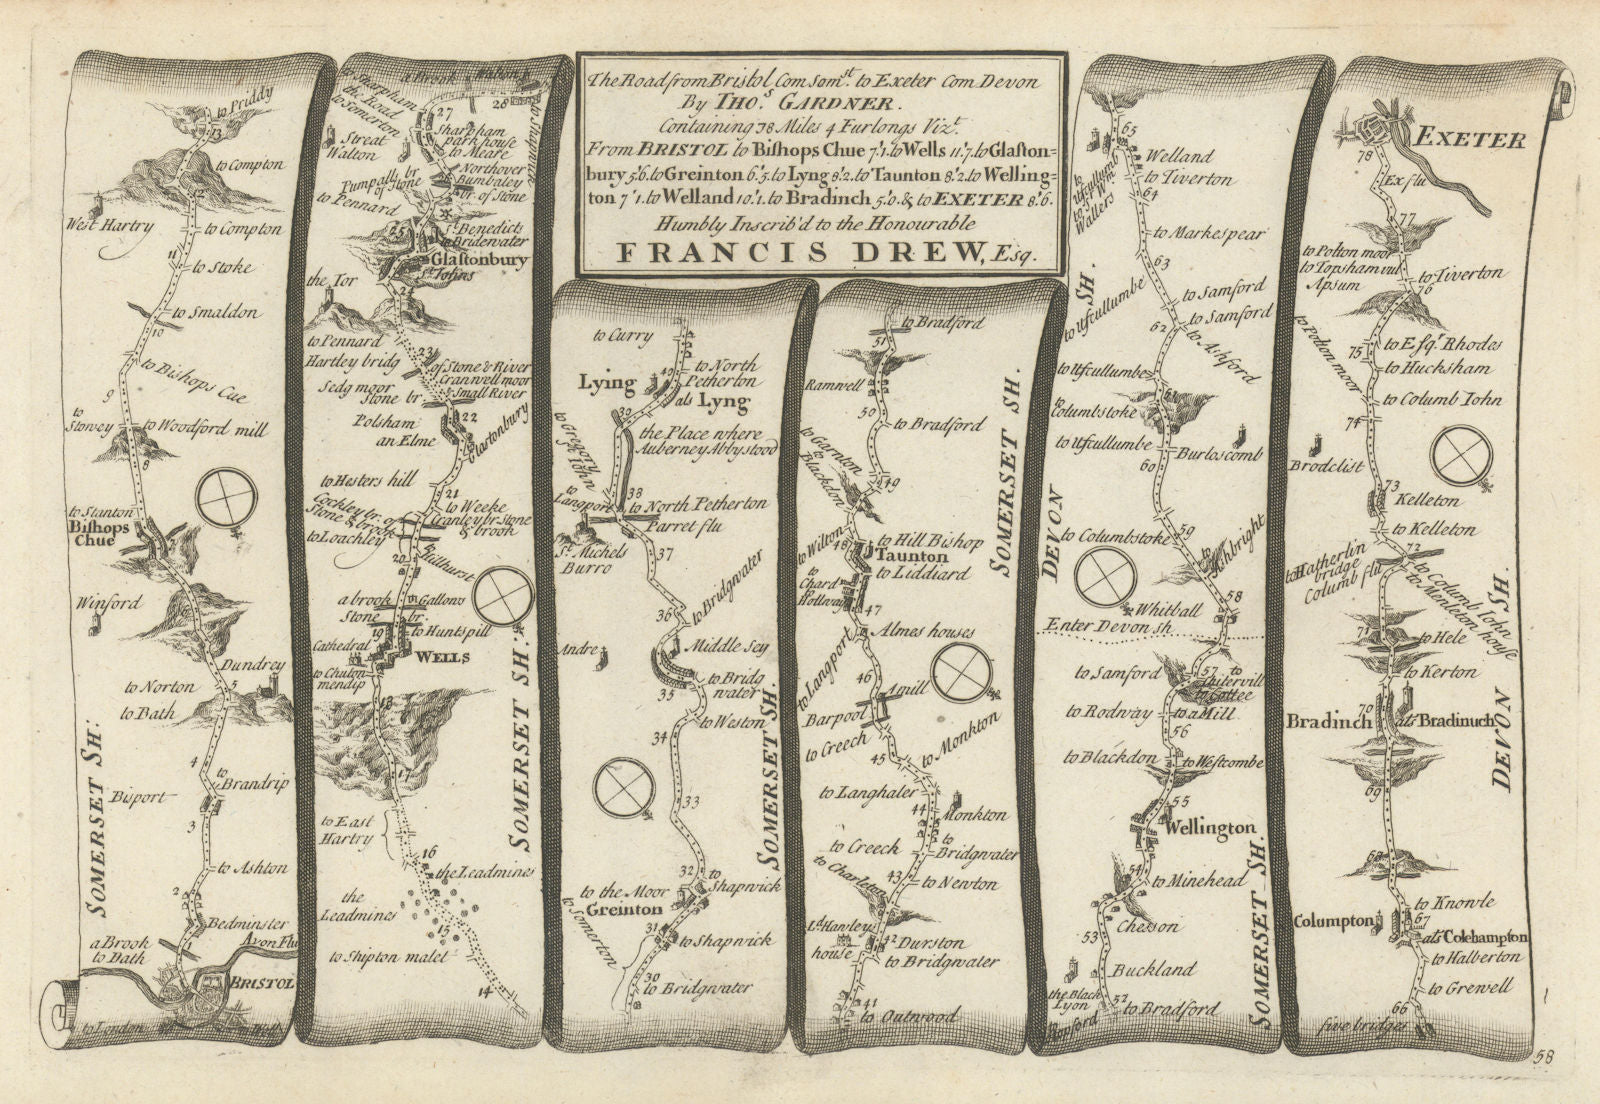 The Road from Bristol Com Somst. to Exeter Com Devon
By THOs. GARDNER.
Containing 78 Miles 4 Furlongs Vizt.
From BRISTOL to Bishops Chue 7'1. to Wells 11'7. to Glaston=
bury 5'6. to Greinton 6'5. to Lyng 8'2. to Taunton 8'2. to Welling=
ton 7'1. to Welland 10'1. to Bradinch 5'0. & to EXETER 8'6.
Humbly Inscrib'd to the Honourable
FRANCIS DREW, Esq.
to Priddy
13
to Compton
12
West Hartry
to Compton
11
to Stoke
to Smaldon
10
to Bishops Cue
9
to Stowey
to Woodford mill
8
to Stanton
Bishops Chue
7
6
Winford
Dundrey
to Norton
5
to Bath
4
to Brandrip
Bisport
3
to Ashton
2
Bedminster
1
a Brook
Avon Flu
to Bath
BRISTOL
to London
SOMERSET SH:
a Brook
Walton
to Sharpham
the Road
to Somerton
27
28
to Shapwick
Streat
Walton
Sharpham
park house
to Meare
Northover
Pumpalls br
of Stone
26
Bumbaley
br of Stone
to Pennard
St. Benedicts
25
to Bridgwater
Glastonbury
St. Johns
the Tor
24
to Pennard
Hartley bridg
23
of Stone & River
Cranwell moor
Sedg moor
Stone br.
& Small River
22
Polsham
an Elme
Glastonbury
to Hesters hill
21
to Weeke
Cockley br. of
Stone & brook
Cranley br. Stone
& brook
to Loachley
20
a brook
Gallows
Stone br.
19
to Huntspill
Cathedral
WELLS
to Chuton
mendip
18
17
to East
Hartry
16
the Leadmines
the
Leadmines
15
to Shipton malet
14
SOMERSET SH:
to Curry
to North
Petherton
40
Lying
als Lyng
39
the Place where
Auberney Abby stood
to Gregory
Stoke John
to
Langport
38
to North Petherton
Parret flu
St. Michels
Burro
37
to Bridgwater
36
Andre
Middle Sey
35
to Bridg
water
to Weston
34
33
32
to
Shapwick
to the Moor
Greinton
to Somerton
31
to Shapwick
30
to Bridgwater
SOMERSET SH.
to Bradford
51
Ramwell
50
to Bradford
to Garnton
to
Blackdon
49
to Wilton
48
to Hill Bishop
Taunton
to Liddiard
to
Chard
Hollway
47
Almes houses
to Langport
46
A mill
Barpool
to Creech
45
to Monkton
to Langhaler
44
Monkton
to Creech
to
Bridgwater
43
to Charleton
to Newton
Ld. Hawleys
house
42
Durston
to Bridgwater
41
to Outwood
SOMERSET SH.
65
Welland
to Tiverton
to Ufcullumb
64
to Wm.
Wallers
to Markespear
63
to Ufcullumbe
to Samford
62
to Samford
to Ashford
to Ufcullumbe
to
Columbstoke
61
to Ufcullumbe
Burloscomb
60
to Columbstoke
59
to
Ashbright
58
Whitball
Enter Devonsh
to Samford
57
to
Thifervill
to Cottee
to Rodway
to a Mill
56
to Blackdon
to Westcombe
55
Wellington
54
to Minehead
Chesson
53
Buckland
the Black
Lyon
52
to Bradford
Ropford
SH.
DEVON
SOMERSET SH.
EXETER
78
Ex flu
77
to Polton moor
to Topsham vul
Apsum
to Tiverton
76
to Polton moor
75
to Esqr. Rhodes
to Hucksham
to Columb John
74
Brodclist
73
Kelleton
to Kelleton
72
to Hatherlin
bridge
Columb flu
to Columb John
to Manton house
71
to Hele
to Kerton
70
Bradinch
als Bradinuch
69
68
to Knowle
Columpton
67
als Colehampton
to Halberton
to Grewell
66
five bridges
DEVON SH.
58